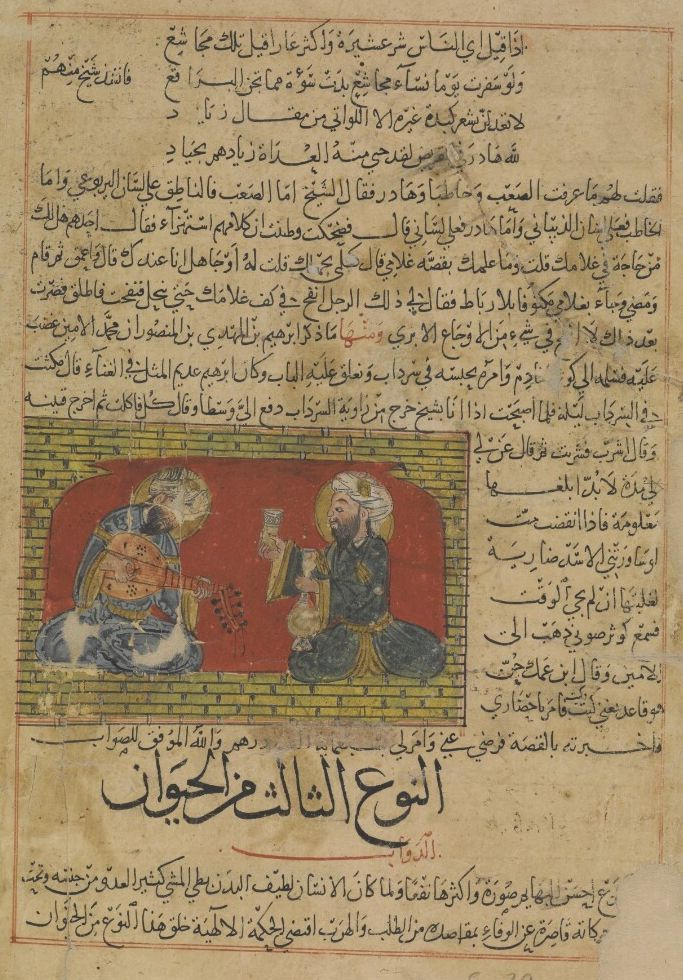 اذا قيل اي الناس شر عشيرة واكثر عارا قيل تلك مجاشع
ولو سفرت يوما نسآء مجاشع بدت سوءة البراقع فانشد شيخ منهم
بشعر غيره الا اللواتي من مقال زياد
لله هادر منه الغداة زياد
فقلت لهم ما عرفت الصعب وخاطبا وهادر فقال الشيخ اما الصعب فالناطق على لسان اليربوعي واما
الخاطب فعلى لسان الذبياني واما هادر فعلى لساني قال فضحكت وظننت ان كلامهم استهزآء فقال احدهم هل لك
من حاجة في غلامك قلت وما علمك بقصة غلامي قال كعلمي قلت له او جاهل انا عندك قال واعمى ثم قام
ومضى وجآء بغلامي مكتوفا بلا رباط فقال لي ذلك الرجل انفخ في كف غلامك حتى ينحل فنفخت فاطلق فصرت
بعد ذلك لا في شيء من الاوجاع الا بري ومنها ما ذكر ابرهيم بن المهدي بن المنصور ان محمد الامين غضب
عليه فسلمه الى كوثر وامره بحبسه في سرداب وتغلق عليه الباب وكان ابرهيم عديم المثل في الغنآء قال مكثت
في السرداب ليلة فلما اصبحت اذا انا بشيخ خرج من زاوية السرداب دفع الي وسطا وقال كل فاكلت ثم اخرج قنينة
وقال اشرب فشربت ثم قال غن لي
لي مدة لا بد ابلغها
معلومة فاذا انقضت مت
لو ساورتني الاسد ضارية
لغلبتها ان لم يجي الوقت
فسمع كوثر صوتي ذهب الى
الامين وقال ابن عمك جن
هو قاعد يغني كيت كيت فامر باحضاري
فاخبرته بالقصة فرضي عني وامر لي درهم والله الموفق للصواب
النوع الثالث من الحيوان
الدواب
احسن البهايم صورة واكثرها نفعا ولما كان الانسان لطيف البدن بطي المشي كثير العدو من جنسه
قاصرة عن الوفاء بمقاصده من الطلب والهرب اقتضى الحكمة الالهية خلق هذا النوع من الحيوان